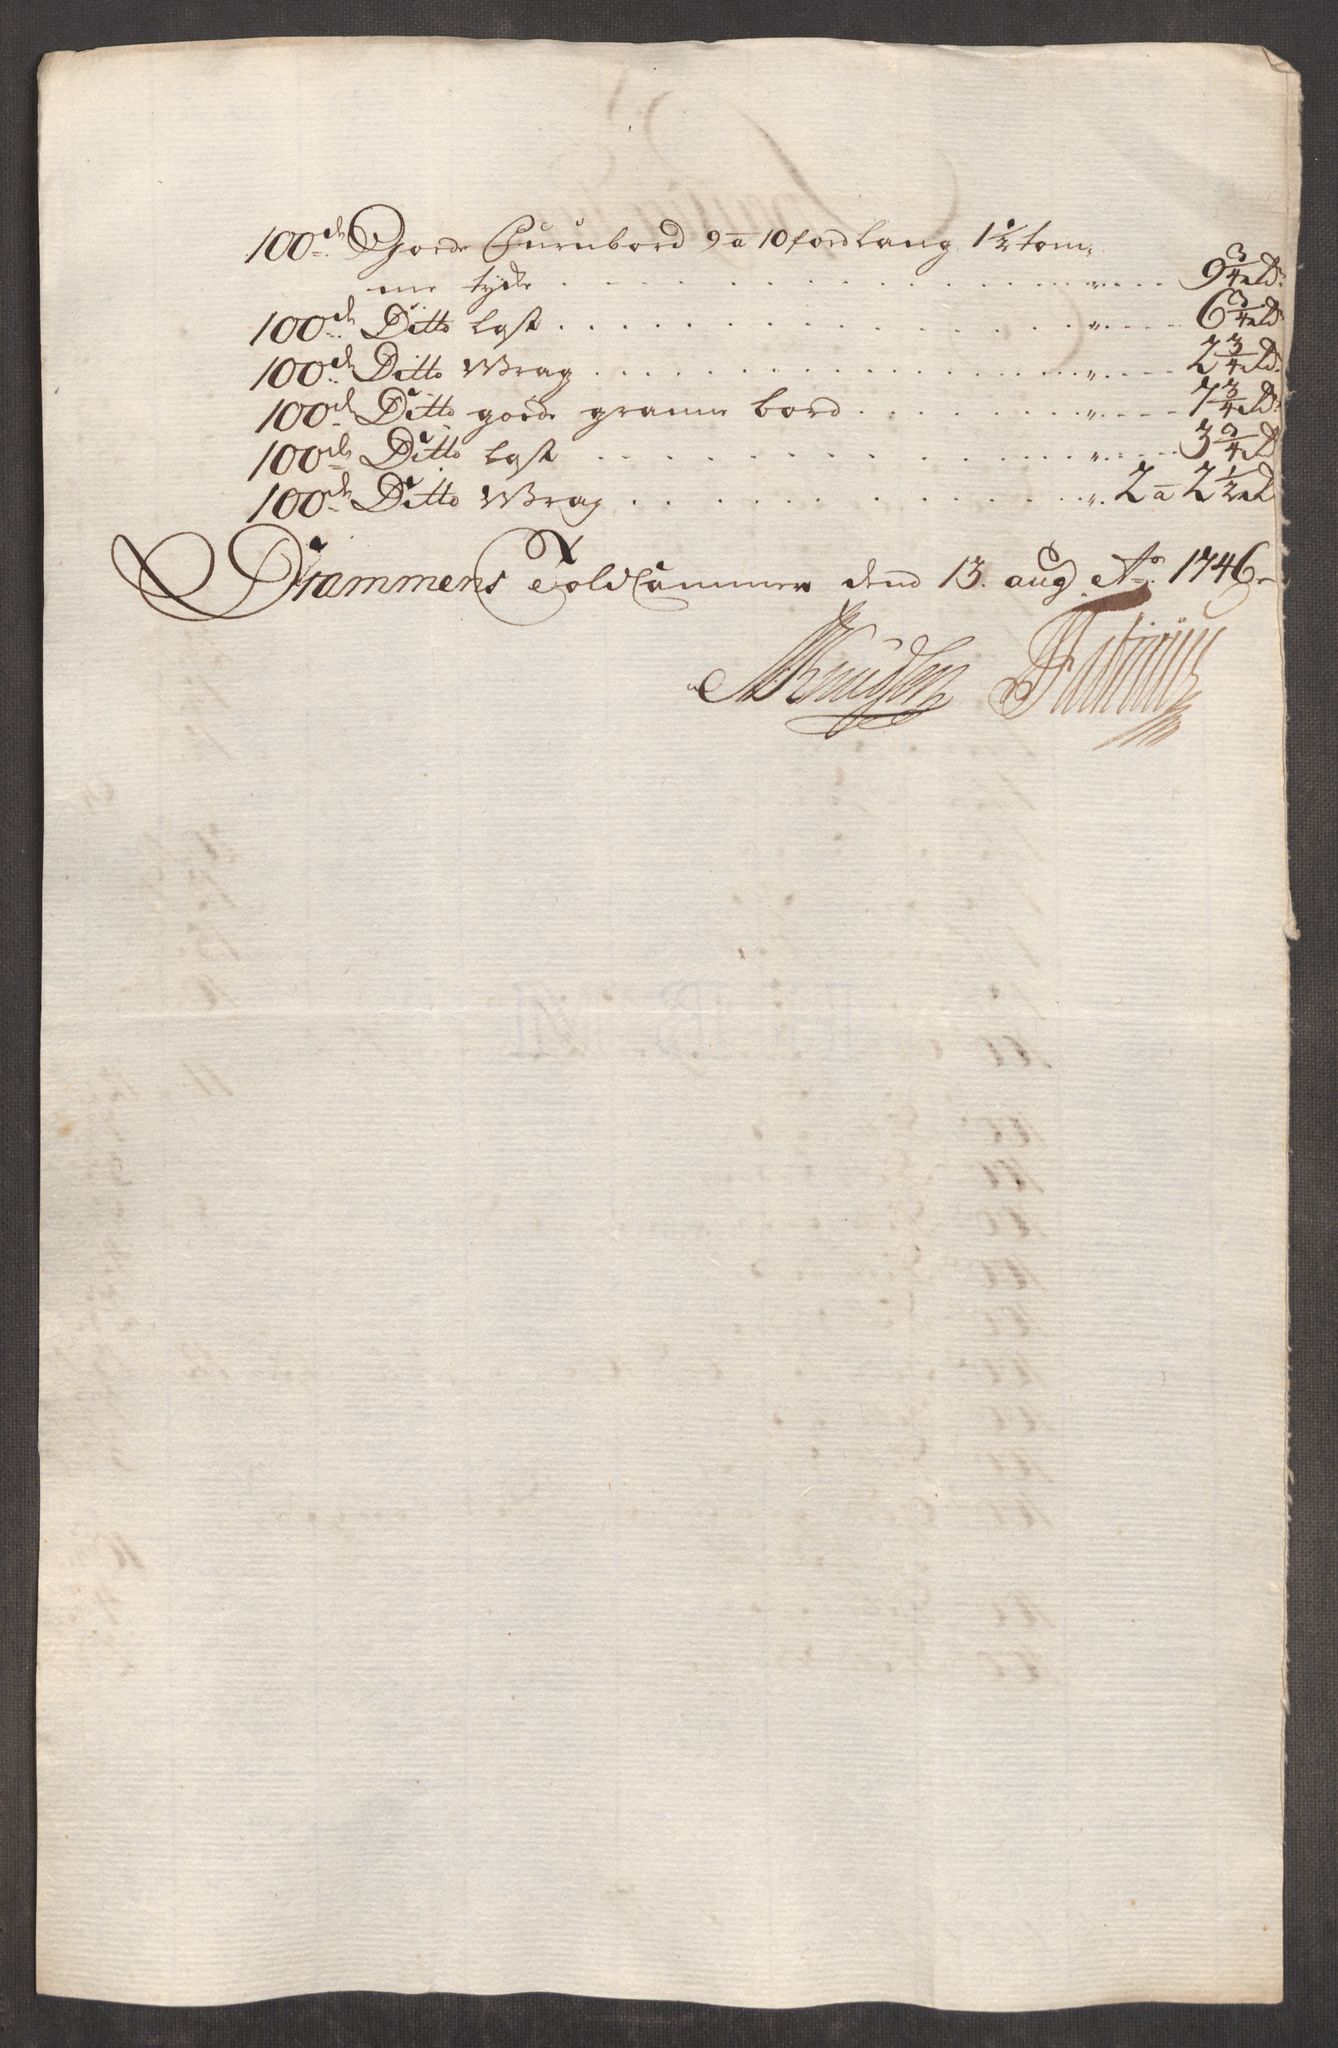 100de Goede Furubord 9 a 10 fod lang 1½ tom-
me tycke . . . . . . . . 9¾ rd:
100de Ditto last . . . . . . . . 6¾ rd
100de Ditto Wrag . . . . . . . . 2¾ rd:
100de Ditto goede grane bord . . . . . . . . 7¾ rd:
100de Ditto last . . . . . . . . 3¾ rd
100de Ditto Wrag . . . . . . . . 2 a 2½ rd
Drammens Toldcammer dend 13. aug. Ao. 1746
Knudsen